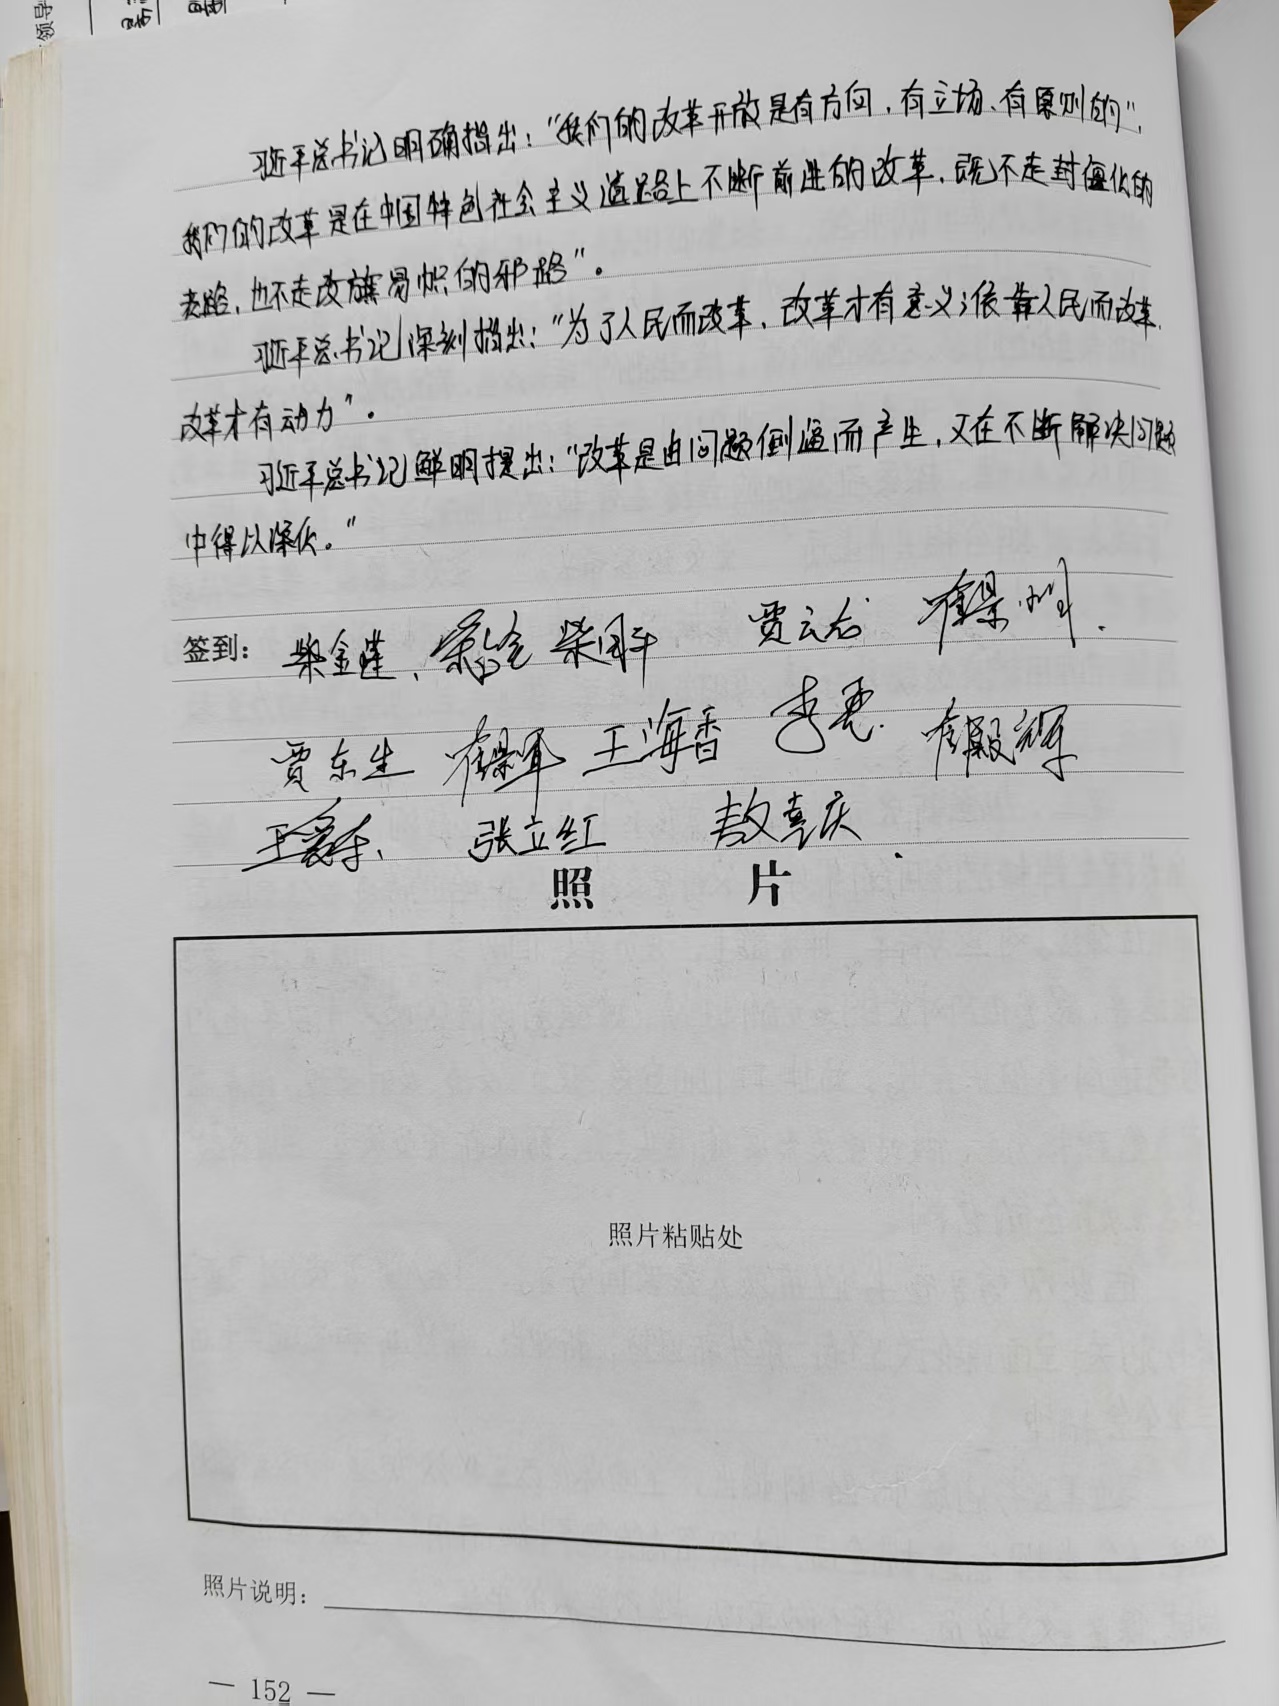 习近平总书记明确指出：“我们的改革开放是有方向，有立场、有原则的”，
我们的改革是在中国特色社会主义道路上不断前进的改革，既不走封僵化的
老路，也不走改旗易帜的邪路”。
习近平总书记深刻指出：“为了人民而改革，改革才有意义；依靠人民而改革，
改革才有动力”。
习近平总书记鲜明提出：“改革是由问题倒逼而产生，又在不断解决问题
中得以深化。”
签到： 柴金莲、 贾云龙
贾东生 王海香
张立红 敖喜庆
照 片
照片粘贴处
照片说明：
— 152 —